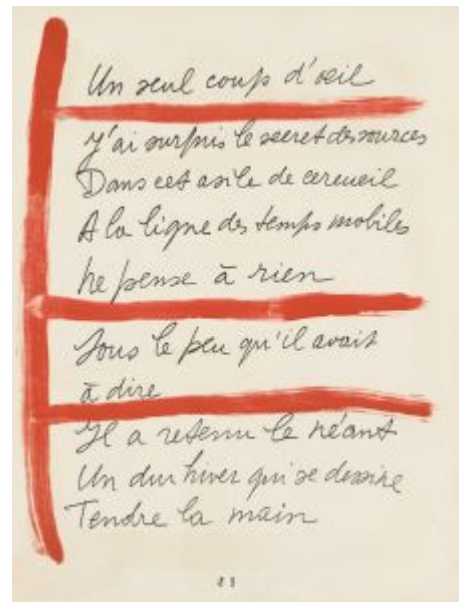 Un seul coup d'œil
J'ai surpris le secret des sources
Dans cet asile de cercueil
A la ligne des temps mobiles
Ne pense à rien
Sous le peu qu'il avait
à dire
Il a retenu le néant
Un dur hiver qui se dessine
Tendre la main